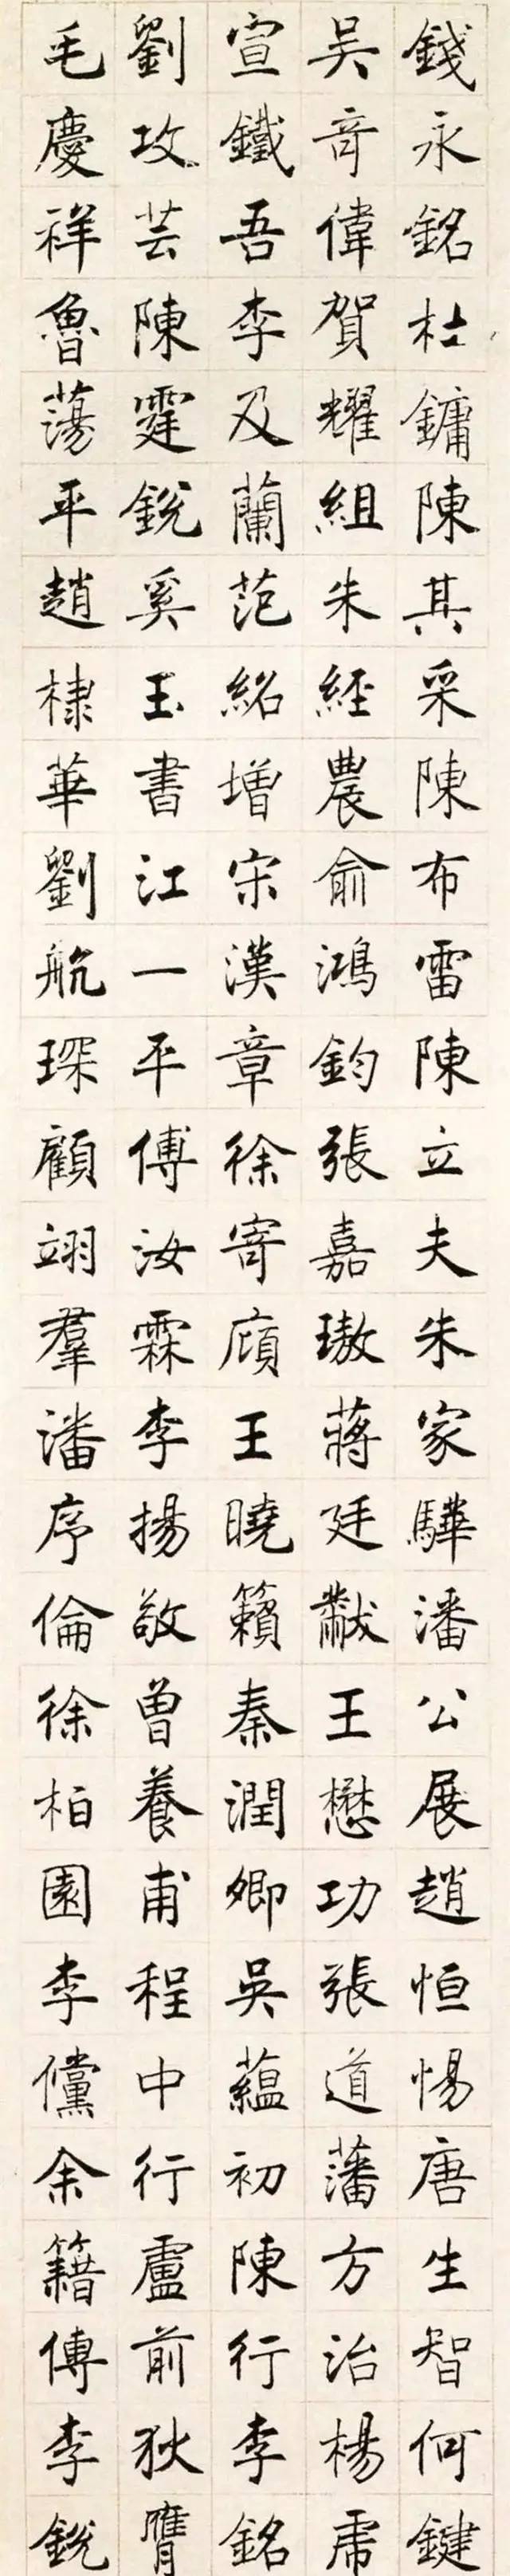 錢永銘杜鏞陳其采陳布雷陳立夫朱家驊潘公展趙恒惕唐生智何鍵
吳竒偉賀耀組朱經農俞鴻鈞張嘉璈蔣廷黻王懋功張道藩方治楊虎
宣鐵吾李及蘭范紹增宋漢章徐寄廎王曉籟秦潤卿吳藴初陳行李銘
劉攻芸陳霆銳奚玉書江一平傅汝霖李揚敬曾養甫程中行盧前狄膺
毛慶祥魯蕩平趙棣華劉航琛顧翊羣潘序倫徐柏園李儻余籍傳李銳